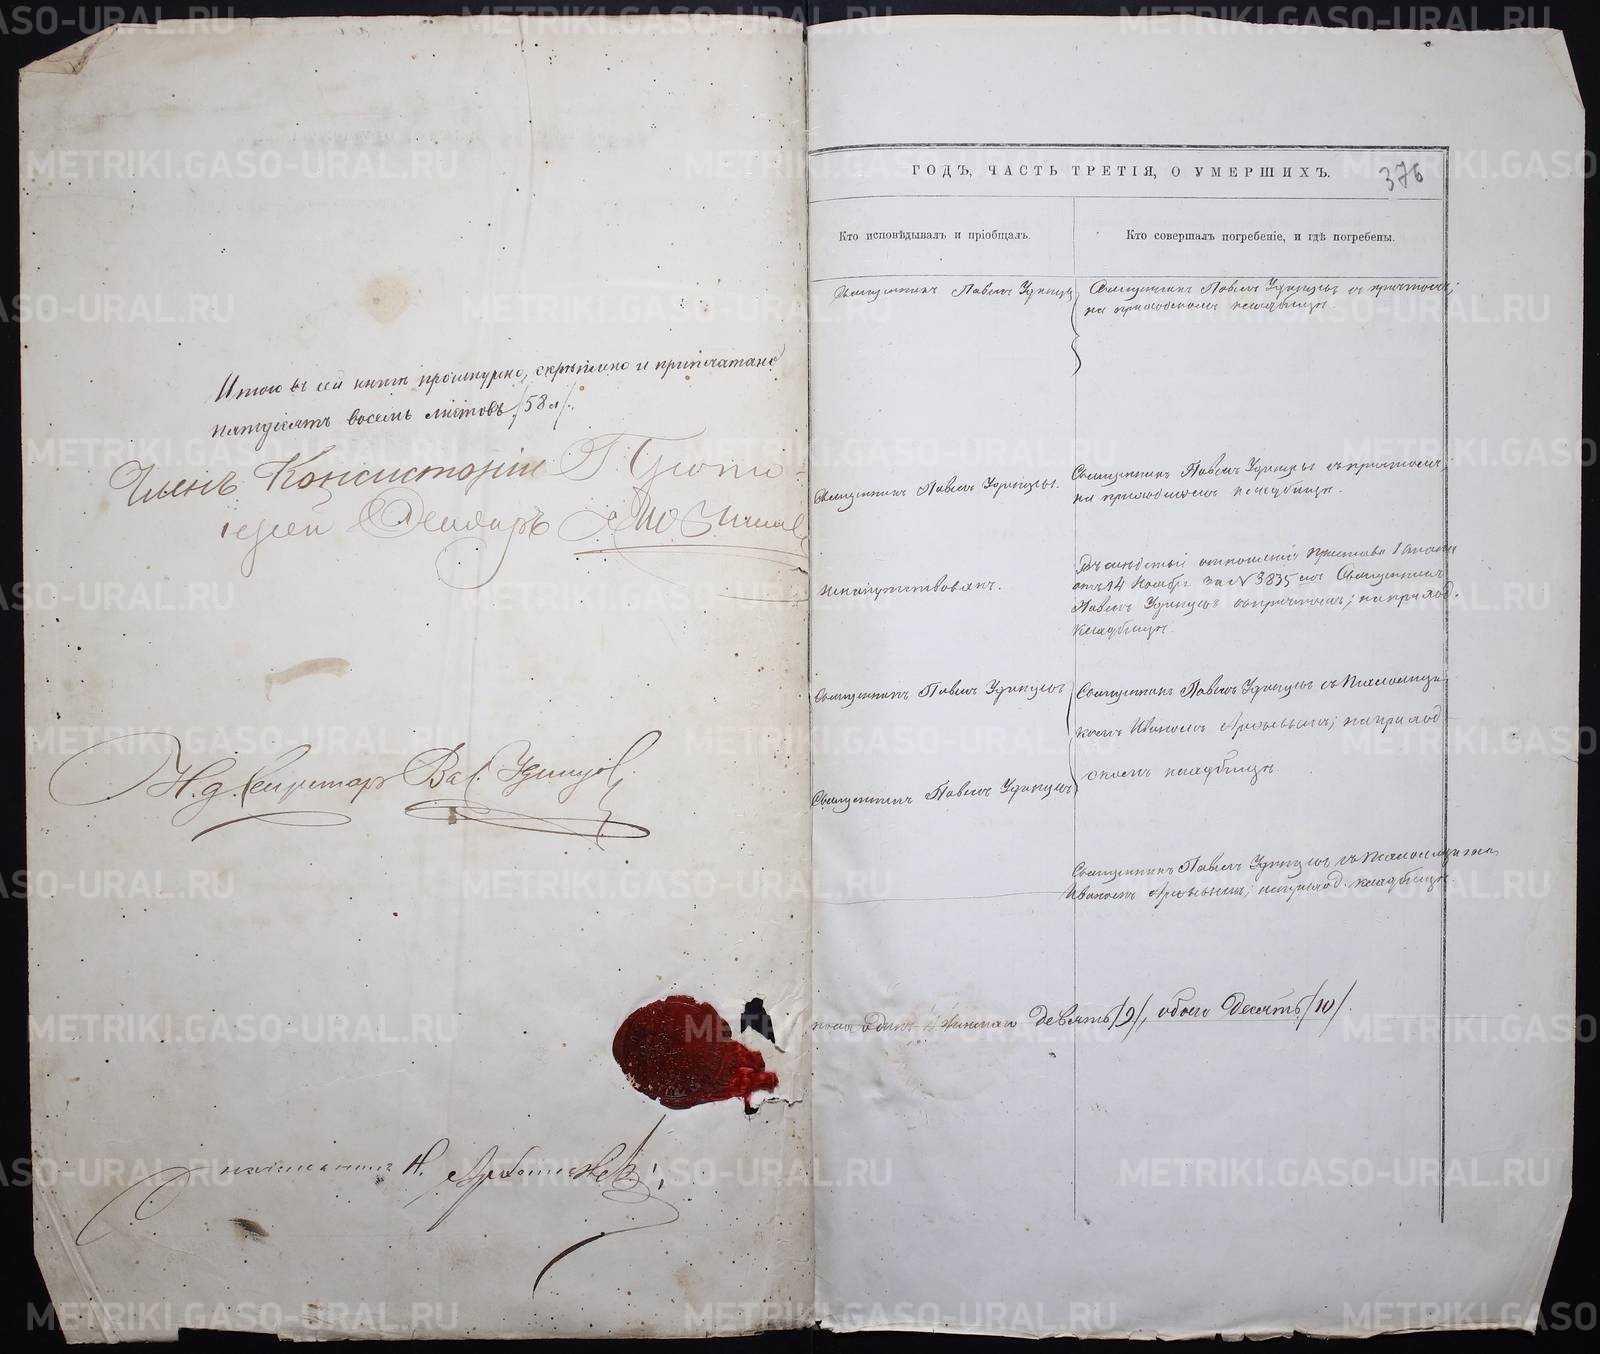 Итого въ сей книгѣ прошнурно, скрѣплено и припечатано
пятдесятъ восемь листовъ /58 л/.
Членъ Консисторіи
Н. д. Секретарь Вас. Удинцов
Н.
ГОДЪ, ЧАСТЬ ТРЕТІЯ, О УМЕРШИХЪ.
376
Кто исповѣдывалъ и пріобщалъ.
Кто совершалъ погребеніе, и гдѣ погребены.
Священникъ Павелъ Удинцовъ
Священникъ Павелъ Удинцовъ съ причтомъ;
на приходскомъ кладбищѣ.
Священникъ Павелъ Удинцовъ.
Священникъ Павелъ Удинцовъ съ причтомъ;
на приходскомъ кладбищѣ.
ненапутствованъ.
Въ слѣдствіе отношенія Пристава 1 стана
отъ 14 Ноября за № 3835 Священник
Павелъ Удинцовъ съ причтомъ; на приход.
кладбищѣ.
Священникъ Павелъ Удинцовъ
Священникъ Павелъ Удинцовъ съ Псаломщи-
комъ Иваномъ; на приход
скомъ кладбищѣ.
Священникъ Павелъ Удинцовъ
Священникъ Павелъ Удинцовъ съ Псаломщикомъ
Иваномъ; на приход. кладбищѣ.
пола одинъ, женскаго девять /9/, обоего десять /10/.
METRIKI.GASO-URAL.RU